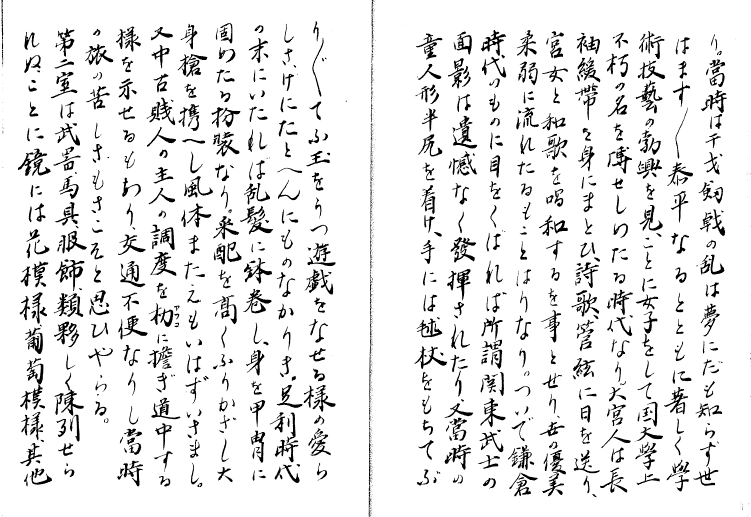 り。當時は干戈劔戟の乱は夢にだも知らず世
はます〱泰平なるとともに著しく學
術技藝の勃興を見、ことに女子をして国文學上
不朽の名を博せしめたる時代なり。大宮人は長
袖緩帶を身にまとひ、詩歌管絃に日を送り、
宮女と和歌を唱和するを事とせり、世の優美
柔弱に流れたるもことはりなり。ついで鎌倉
時代のものに目をくばれば所謂関東武士の
面影は遺憾なく發揮されたり、又當時の
童人形半尻を着け、手には毬杖をもちてぶ
り〱てふ玉をうつ遊戯をなせる様の愛ら
しさ、げにたとへんにものなかりき。足利時代
の末にいたれば乱髪に鉢巻し、身を甲冑に
固めたる扮装なり。采配を高くふりかざし大
身槍を携へし風体またえもいはずいさまし。
又中古賤人の主人の調度を朸に擔ぎ道中する
様を示せるもあり、交通不便なりし當時
の旅の苦しさもさこそと思ひやらる。
第二室は武器馬具服飾類夥しく陳列せら
れぬ。ことに鏡には花模様葡萄模様其他